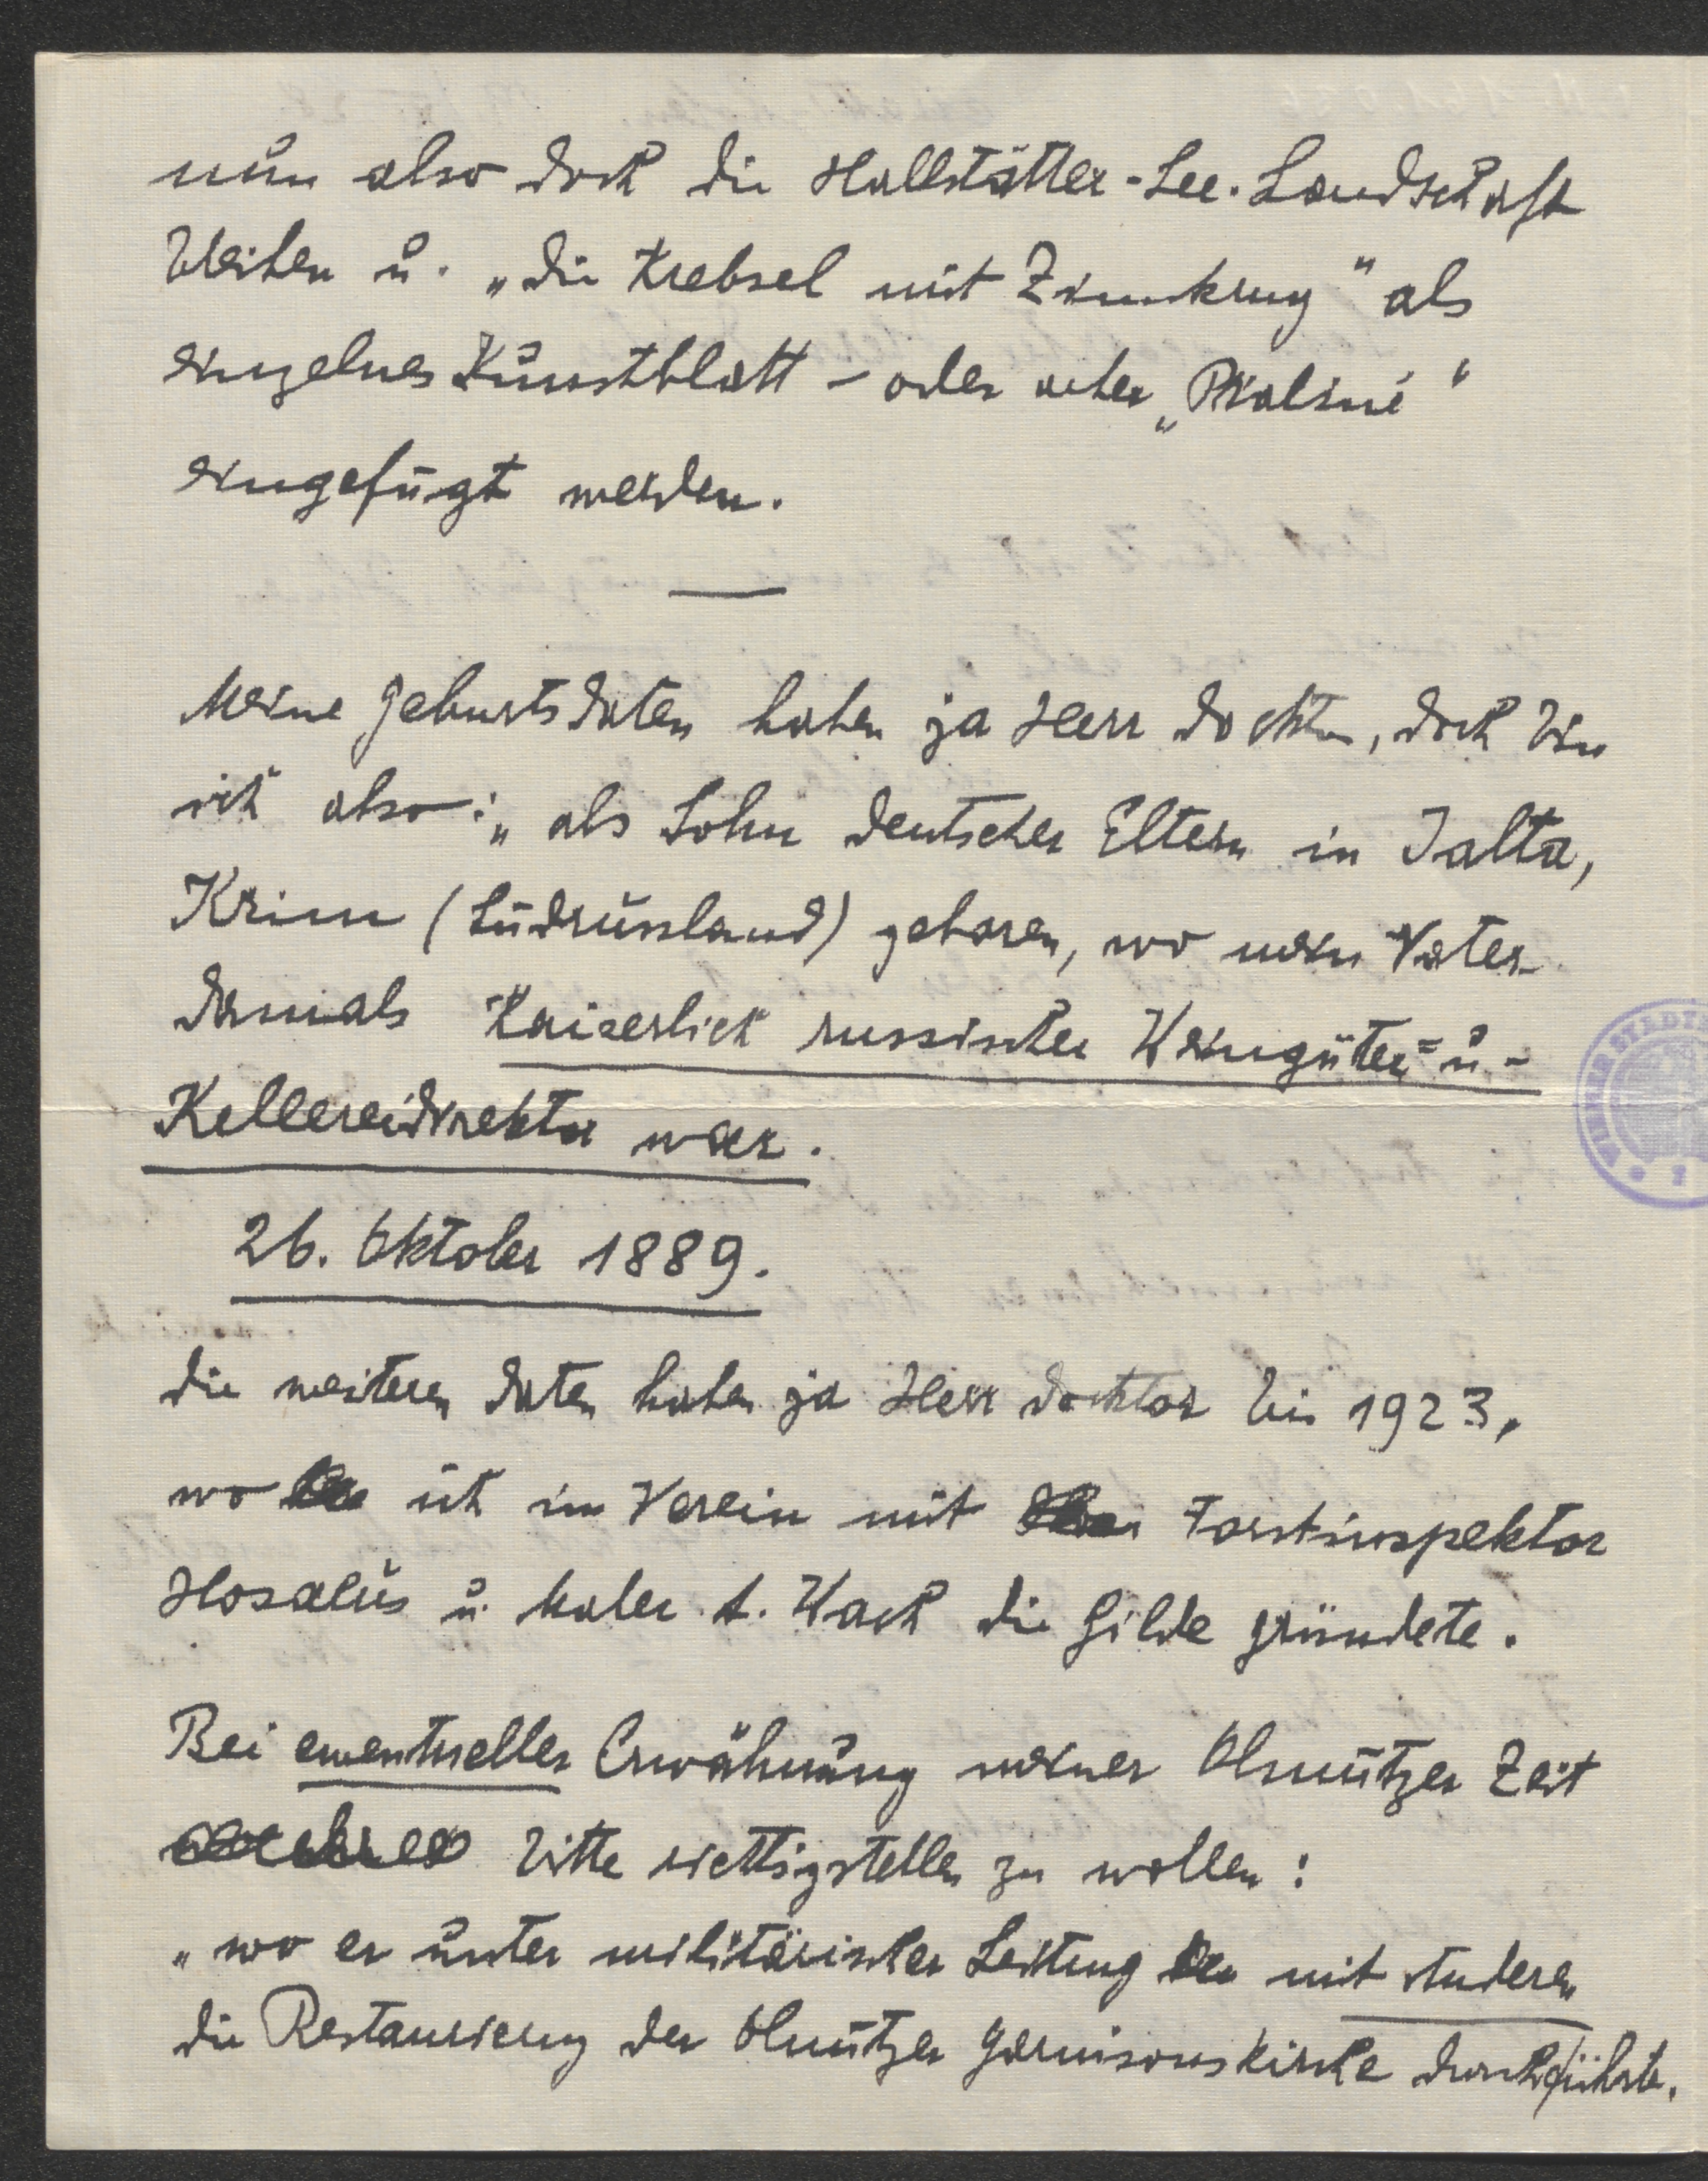 nun also doch die Hallstätter-See-Landschaft
bleiben u. „die Krebsel mit Zinnkrug" als
einzelnes Kunstblatt – oder aber „Praliné"
eingefügt werden.
Meine Geburtsdaten haben ja Herr Docktor, doch bin
ich also: „als Sohn deutscher Eltern in Jalta,
Krim (Südrussland) geboren, wo mein Vater
damals Kaiserlich russischer Weingüter= u -
Kellereidirektor war.
26. Oktober 1889.
die weiteren Daten haben ja Herr Docktor bis 1923,
wo ich im Verein mit Forstinspektor
Hosaeus u. Maler A. Wach die Gilde gründete.
Bei eventueller Erwähnung meiner Olmützer Zeit
bitte richtigstellen zu wollen:
„wo er unter militärischer Leitung mit Anderen
die Restaurierung der Olmützer Garnisonskirche durchführte.
WIENER STÄDT